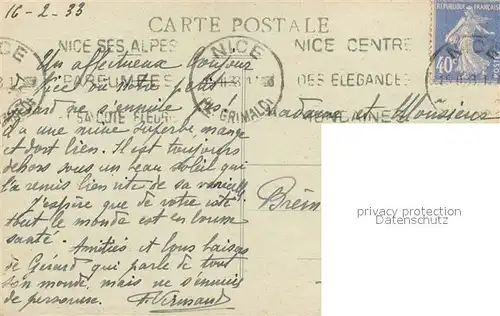 16-2-33
CARTE POSTALE
RÉPUBLIQUE FRANÇAISE
40c
NICE SES ALPES
PARFUMÉES
SA CÔTE FLEURIE
NICE
GRIMALDI
NICE CENTRE
DES ELEGANCES
MONDAINES
Un affectueux bonjour
de Nice où notre petit
ne s'ennuie pas!
Il a une mine superbe mange
et dort bien. Il est toujours
dehors sous un beau soleil qui
l'a remis bien vite de sa
J'espère que de votre côté
tout le monde est en bonne
santé.
Amitiés et bons baisers
de Gérard qui parle de tout
son monde, mais ne s'ennuie
de personne.
Madame et Monsieur
privacy protection
Datenschutz